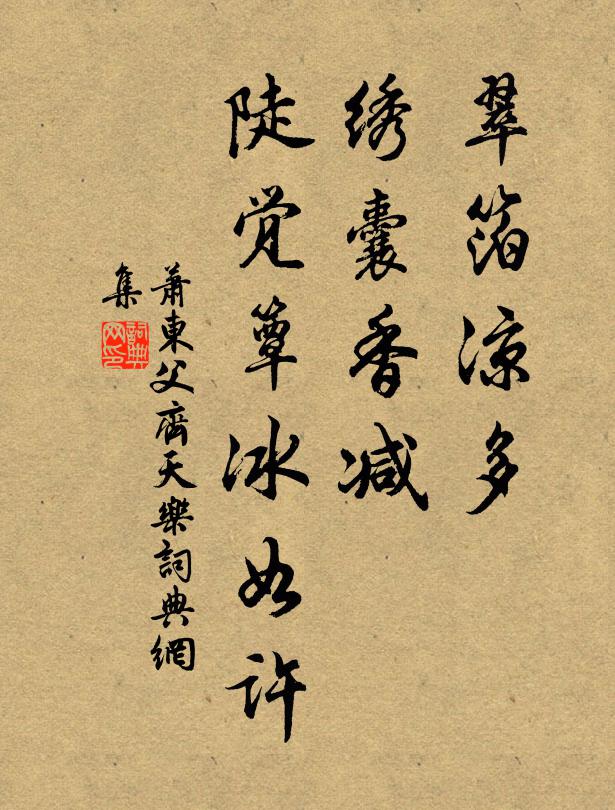 翠箔凉多
绣囊香减
陡觉簟冰如许
萧東父齊天樂詞典網
集
詞典网印